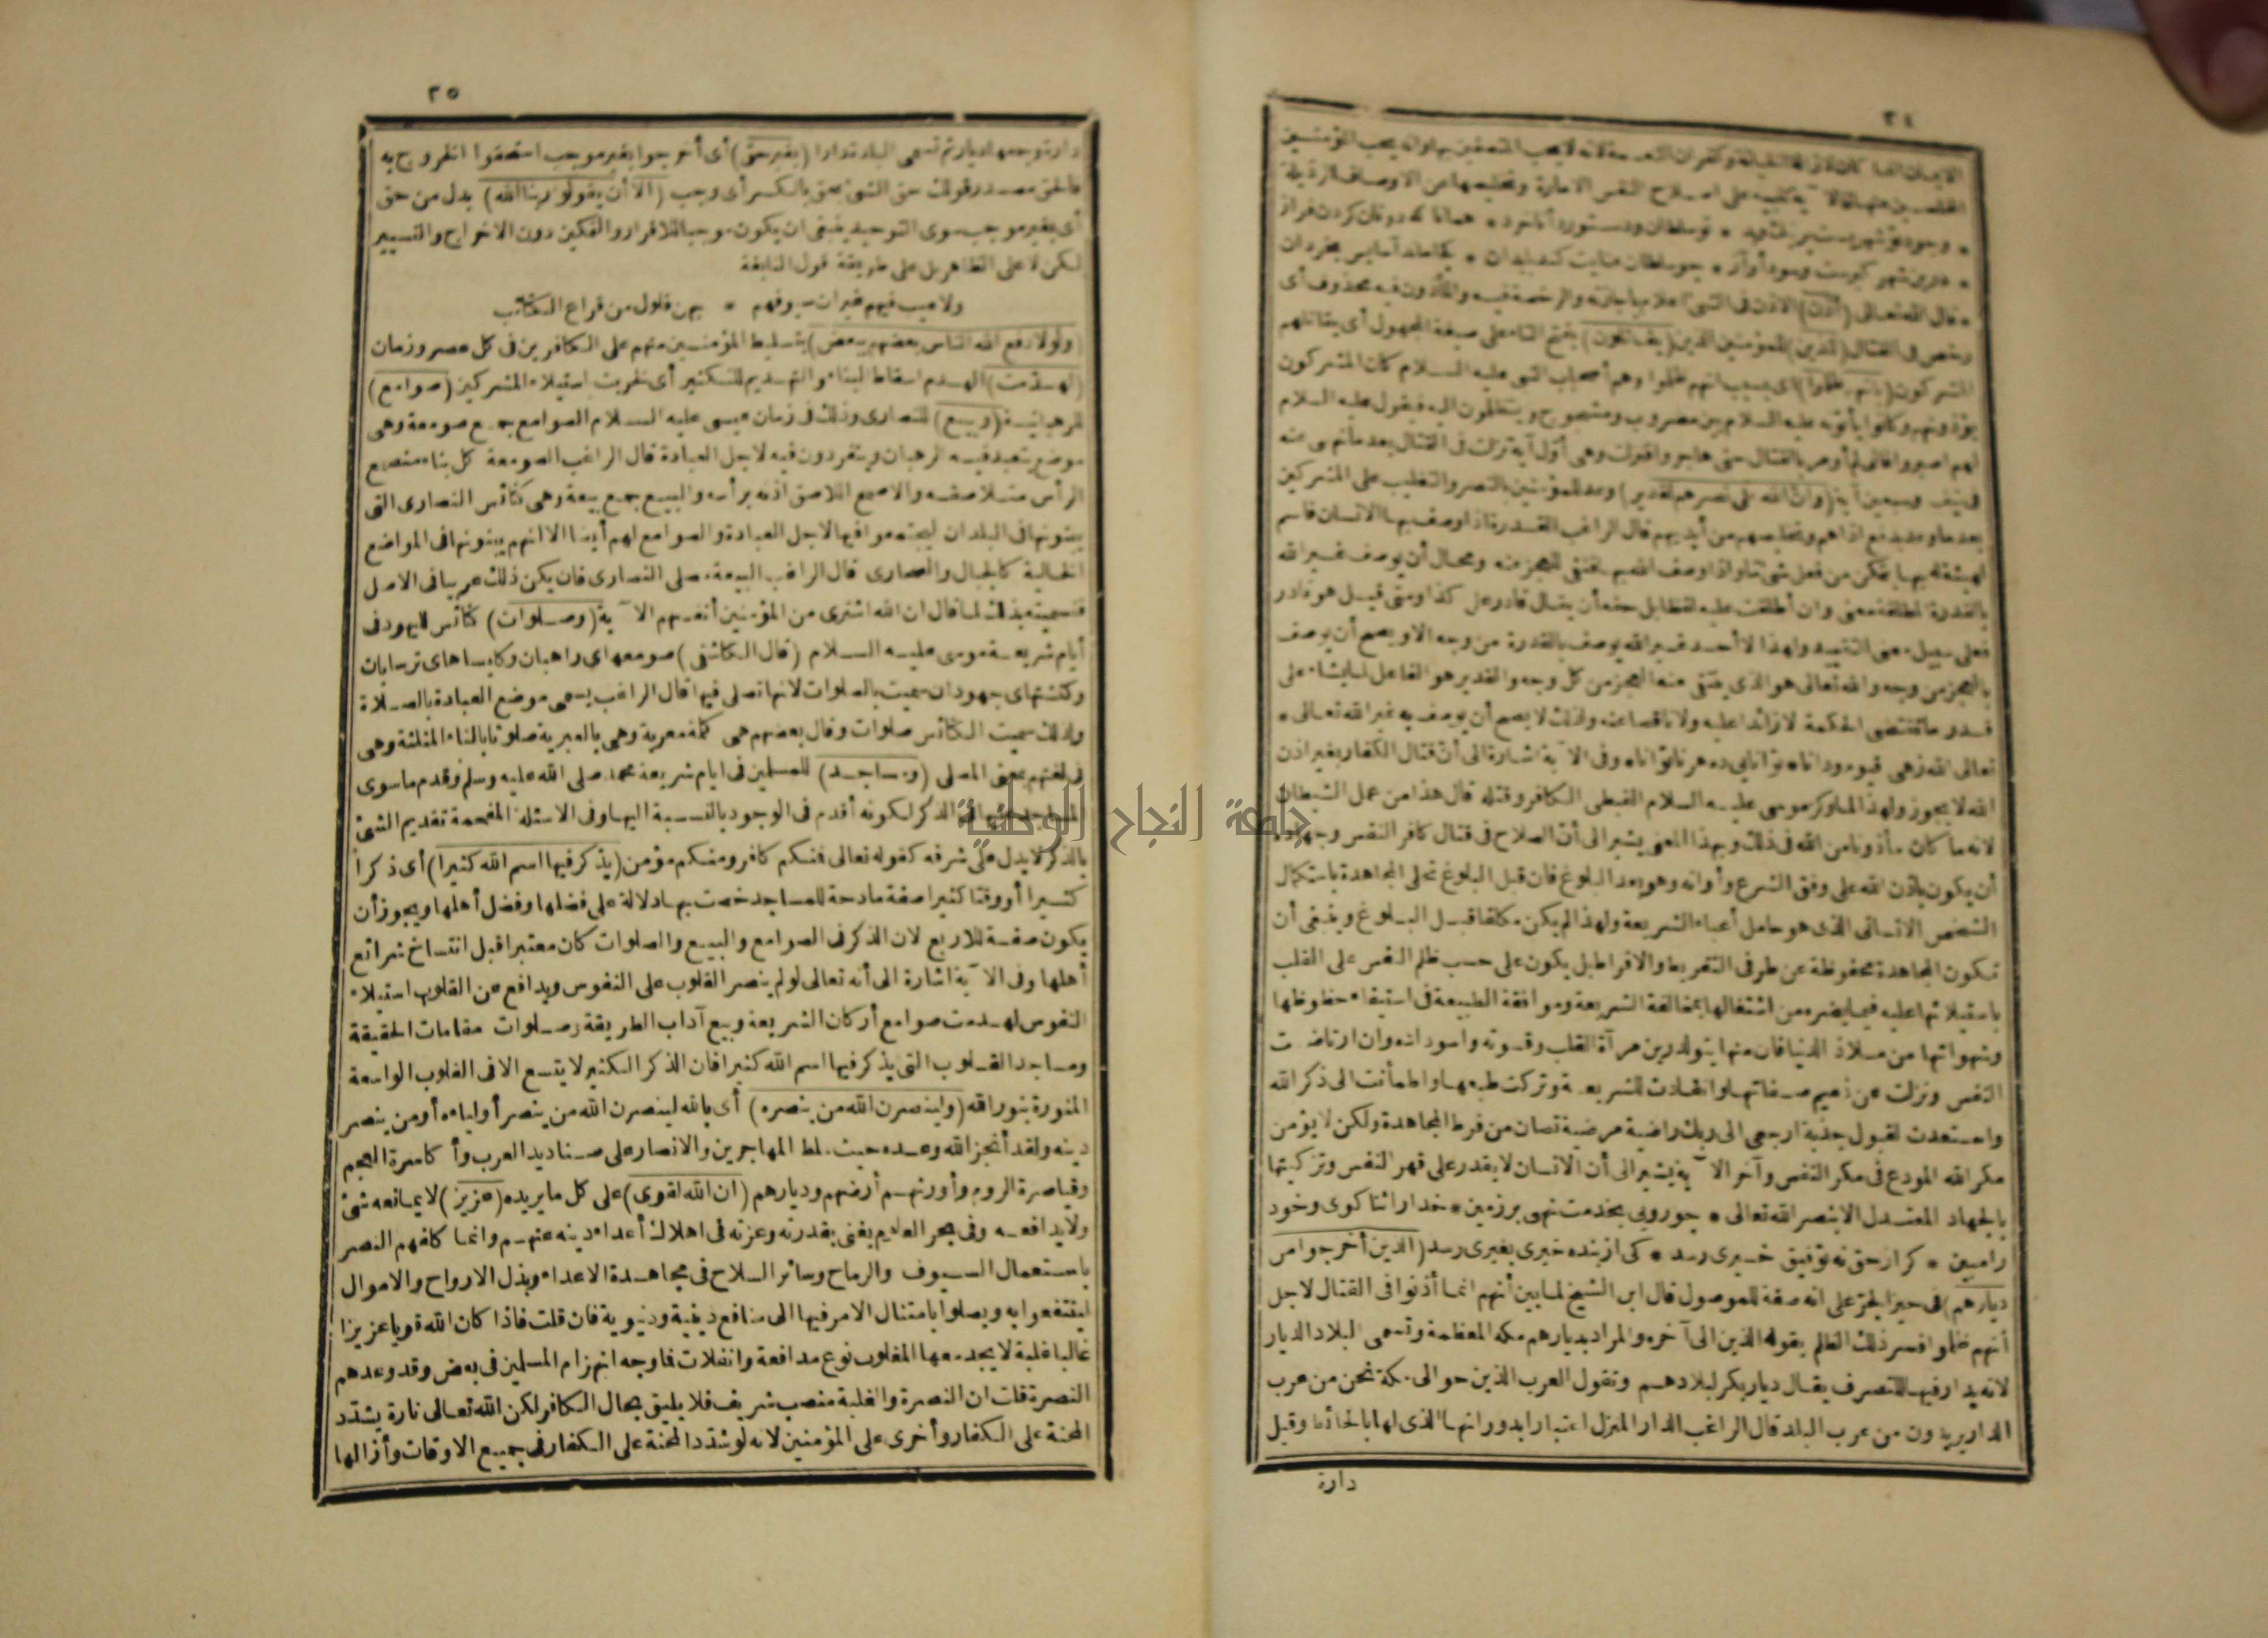 ٣٤
قال الله تعالى (أذن) الاذن فى الشئ اعلام باجازته والرخصة فيه والمأذون فيه محذوف أى
رخص فى القتال (للذين) للمؤمنين الذين (يقاتلون) بفتح التاء على صيغة المجهول أى يقاتلهم
المشركون (بانهم ظلموا) أى بسبب انهم ظلموا وهم أصحاب النبى عليه السلام كان المشركون
يؤذونهم وكانوا يأتونه عليه السلام بين مضروب ومشجوج ويتظلمون اليه فيقول عليه السلام
لهم اصبروا فانى لم أومر بالقتال حتى هاجروا فنزلت وهى أول آية نزلت فى القتال بعد ما نهى عنه
فى نيف وسبعين آية (وان الله على نصرهم لقدير) وعد للمؤمنين بالنصر والتغليب على المشركين
بعد ما وعد بدفع اذاهم وتخليصهم من أيديهم قال الراغب القدرة اذا وصف بها الانسان فاسم
لهيئة له بها يتمكن من فعل شئ ما واذا وصف الله بها فنفى للعجز عنه ومحال أن يوصف غير الله
بالقدرة المطلقة معنى وان أطلقت عليه لفظا بل حقه أن يقال قادر على كذا ومتى قيل هو قادر
فعلى سبيل معنى التقييد ولهذا لا أحد غير الله يوصف بالقدرة من وجه الا ويصح أن يوصف
بالعجز من وجه والله تعالى هو الذى ينتفى عنه العجز من كل وجه والقدير هو الفاعل لما يشاء على
قدر ما تقتضى الحكمة لا زائدا عليه ولا ناقصا عنه ولذلك لا يصح أن يوصف به غير الله تعالى *
الله لا يجوز ولهذا لما وكز موسى عليه السلام القبطى الكافر وقتله قال هذا من عمل الشيطان
لانه ما كان مأذونا من الله فى ذلك وبهذا المعنى يشير الى أن الصلاح فى قتال كافر النفس وجهاده
أن يكون باذن الله على وفق الشرع وأوانه وهو بعد البلوغ فان قبل البلوغ تحلى المجاهدة باستكمال
الشخص الانسانى الذى هو حامل أعباء الشريعة ولهذا لم يكن مكلفا قبل البلوغ وينبغى أن
تكون المجاهدة محفوظة عن طرفى التفريط والافراط بل يكون على حسب ظلم النفس على القلب
باستيلائها عليه فيما يضره من اشتغالها بمخالفة الشريعة وموافقة الطبيعة فى استيفاء حظوظها
وشهواتها من ملاذ الدنيا فان منها يتولد رين مرآة القلب وقسوته واسوداده وان ارتاضت
النفس ونزلت عن ذميم صفاتها وانقادت للشريعة وتركت طبعها واطمأنت الى ذكر الله
واستعدت لقبول جذبة ارجعى الى ربك راضية مرضية تصان من فرط المجاهدة ولكن لا يؤمن
مكر الله المودع فى مكر النفس وآخر الآية يشير الى أن الانسان لا يقدر على قهر النفس وتزكيتها
بالجهاد المعتدل الا بنصر الله تعالى * چو رويى بخدمت نهى بر زمين * خدا را ثنا كوى وخود
را مبين * كر از حق نه توفيق خيرى رسد * كى از بنده خيرى بغيرى رسد (الذين أخرجوا من
ديارهم) فى حيز الجر على انه صفة للموصول قال ابن الشيخ لما بين أنهم انما أذنوا فى القتال لاجل
أنهم ظلموا فسر ذلك الظلم بقوله الذين الى آخره والمراد بديارهم مكة المعظمة وتسمى البلاد الديار
لانه يدار فيها للتصرف يقال ديار بكر لبلادهم وتقول العرب الذين حوالى مكة نحن من عرب
الدار يريدون من عرب البلد قال الراغب الدار المنزل اعتبارا بدورانها الذى لها بالحائط وقيل
دارة
٣٥
دارة وجمعها ديار ثم تسمى البلدة دارا (بغير حق) أى أخرجوا بغير موجب استحقوا الخروج به
فالحق مصدر قولك حق الشئ يحق بالكسر أى وجب (الا أن يقولوا ربنا الله) بدل من حق
أى بغير موجب سوى التوحيد ينبغى ان يكون موجبا للاقرار والتمكين دون الاخراج والتسيير
لكن لا على الظاهر بل على طريقة قول النابغة
ولا عيب فيهم غير ان سيوفهم * بهن فلول من قراع الكتائب
(ولولا دفع الله الناس بعضهم ببعض) بتسليط المؤمنين منهم على الكافرين فى كل عصر وزمان
(لهدمت) الهدم اسقاط البناء والتهديم للتكثير أى لخربت باستيلاء المشركين (صوامع)
للرهبانية (وبيع) للنصارى وذلك فى زمان عيسى عليه السلام الصوامع جمع صومعة وهى
موضع يتعبد فيه الرهبان وينفردون فيه لاجل العبادة قال الراغب الصومعة كل بناء متصمع
الرأس متلاصقه والاصمع اللاصق اذنه برأسه والبيع جمع بيعة وهى كنائس النصارى التى
يبنونها فى البلدان ليجتمعوا فيها لاجل العبادة والصوامع لهم أيضا الا انهم يبنونها فى المواضع
الخالية كالجبال والصحارى قال الراغب البيعة مصلى النصارى فان يكن ذلك عربيا فى الاصل
فتسميته بذلك لما قال ان الله اشترى من المؤمنين أنفسهم الآية (وصلوات) كنائس لليهود فى
أيام شريعة موسى عليه السلام (قال الكاشفى) صومعهاى راهبان وكليساهاى ترسايان
وكنشتهاى جهودان سميت بالصلوات لانها تصلى فيها قال الراغب يسمى موضع العبادة بالصلاة
ولذلك سميت الكنائس صلوات وقال بعضهم هى كلمة معربة وهى بالعبرية صلوثا بالثاء المثلثة وهى
فى لغتهم بمعنى المصلى (ومساجد) للمسلمين فى ايام شريعة محمد صلى الله عليه وسلم وقدم ما سوى
المساجد عليها فى الذكر لكونه أقدم فى الوجود بالنسبة اليها وفى الاسئلة المقحمة تقديم الشئ
بالذكر لا يدل على شرفه كقوله تعالى فمنكم كافر ومنكم مؤمن (يذكر فيها اسم الله كثيرا) أى ذكرا
كثيرا أو وقتا كثيرا صفة مادحة للمساجد خصت بها دلالة على فضلها وفضل أهلها ويجوز أن
يكون صفة للاربع لان الذكر فى الصوامع والبيع والصلوات كان معتبرا قبل انتساخ شرائع
أهلها وفى الآية اشارة الى أنه تعالى لو لم ينصر القلوب على النفوس ويدافع عن القلوب استيلاء
النفوس لهدمت صوامع أركان الشريعة وبيع آداب الطريقة وصلوات مقامات الحقيقة
ومساجد القلوب التى يذكر فيها اسم الله كثيرا فان الذكر الكثير لا يتسع الا فى القلوب الواسعة
المنورة بنور الله (ولينصرن الله من ينصره) أى بالله لينصرن الله من ينصر أولياءه أو من ينصر
دينه ولقد أنجز الله وعده حيث سلط المهاجرين والانصار على صناديد العرب وأكاسرة العجم
وقياصرة الروم وأورثهم أرضهم وديارهم (ان الله لقوى) على كل ما يريده (عزيز) لا يمانعه شئ
ولا يدافعه وفى بحر العلوم يغنى بقدرته وعزته فى اهلاك أعداء دينه عنهم وانما كلفهم النصر
باستعمال السيوف والرماح وسائر السلاح فى مجاهدة الاعداء وبذل الارواح والاموال
لينتفعوا به ويصلوا بامتثال الامر فيها الى منافع دينية ودنيوية فان قلت فاذا كان الله قويا عزيزا
غالبا غلبة لا يجد معها المغلوب نوع مدافعة وانفلات فما وجه انهزام المسلمين فى بعض وقد وعدهم
النصرة قلت ان النصرة والغلبة منصب شريف فلا يليق بحال الكافر لكن الله تعالى تارة يشدد
المحنة على الكفار وأخرى على المؤمنين لانه لو شدد المحنة على الكفار فى جميع الاوقات وأزالها
جامعة النجاح الوطنية